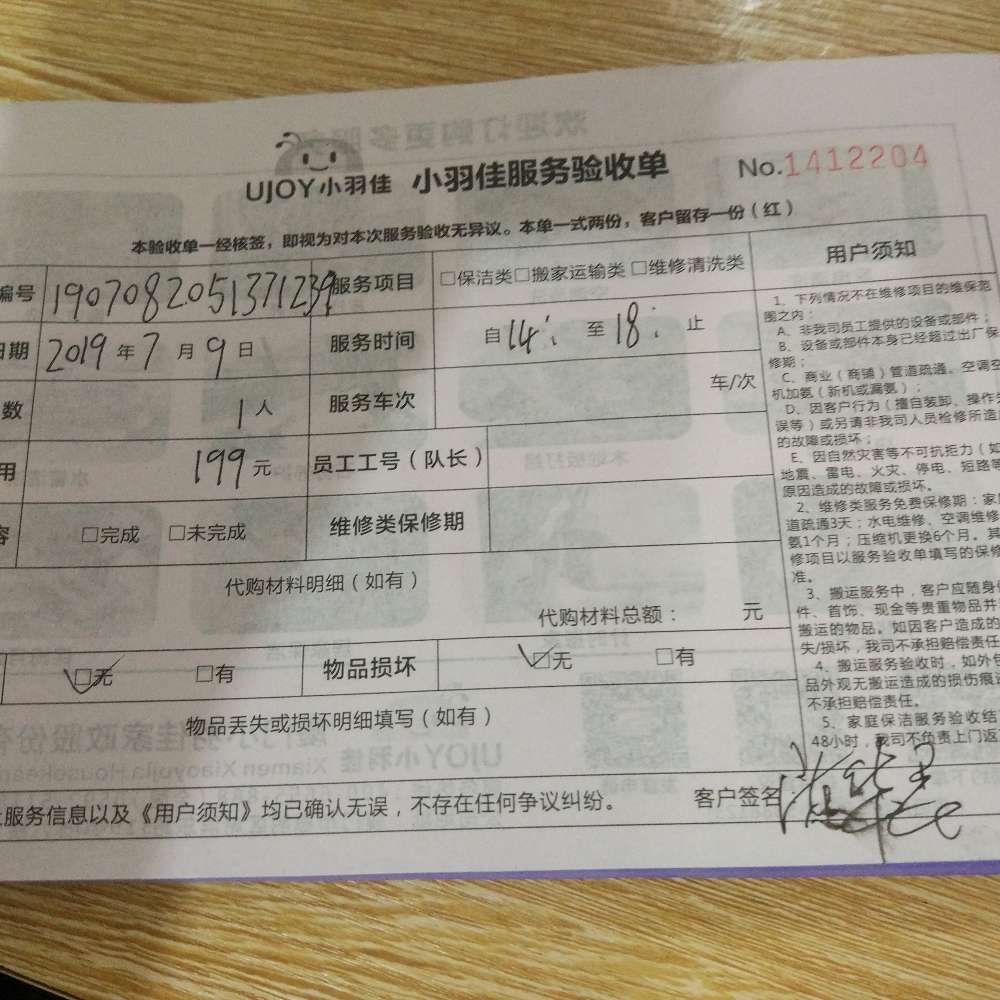 UJOY小羽佳 小羽佳服务验收单 No.1412204
本验收单一经核签，即视为对本次服务验收无异议。本单一式两份，客户留存一份（红）
编号 服务项目 □保洁类□搬家运输类□维修清洗类
日期 2019年7月9日 服务时间 自14: 至18: 止
数 1人 服务车次 车/次
用 199元 员工工号（队长）
容 □完成 □未完成 维修类保修期
代购材料明细（如有）
代购材料总额： 元
□无 □有 物品损坏 □无 □有
物品丢失或损坏明细填写（如有）
服务信息以及《用户须知》均已确认无误，不存在任何争议纠纷。 客户签名
用户须知
1、下列情况不在维修项目的维保范
围之内：
A、非我司员工提供的设备或部件；
B、设备或部件本身已经超过出厂保
修期；
C、商业（商铺）管道疏通、空调空
机加氨（新机或漏氨）；
D、因客户行为（擅自装卸、操作失
误等）或另请非我司人员检修所造
的故障或损坏；
E、因自然灾害等不可抗拒力（如
地震、雷电、火灾、停电、短路等
原因造成的故障或损坏。
2、维修类服务免费保修期：家
道疏通3天；水电维修、空调维修
氨1个月；压缩机更换6个月。其
修项目以服务验收单填写的保修
准。
3、搬运服务中，客户应随身
件、首饰、现金等贵重物品并
搬运的物品。如因客户造成的
失/损坏，我司不承担赔偿责任
4、搬运服务验收时，如外包
品外观无搬运造成的损伤痕迹
不承担赔偿责任。
5、家庭保洁服务验收结
48小时，我司不负责上门返